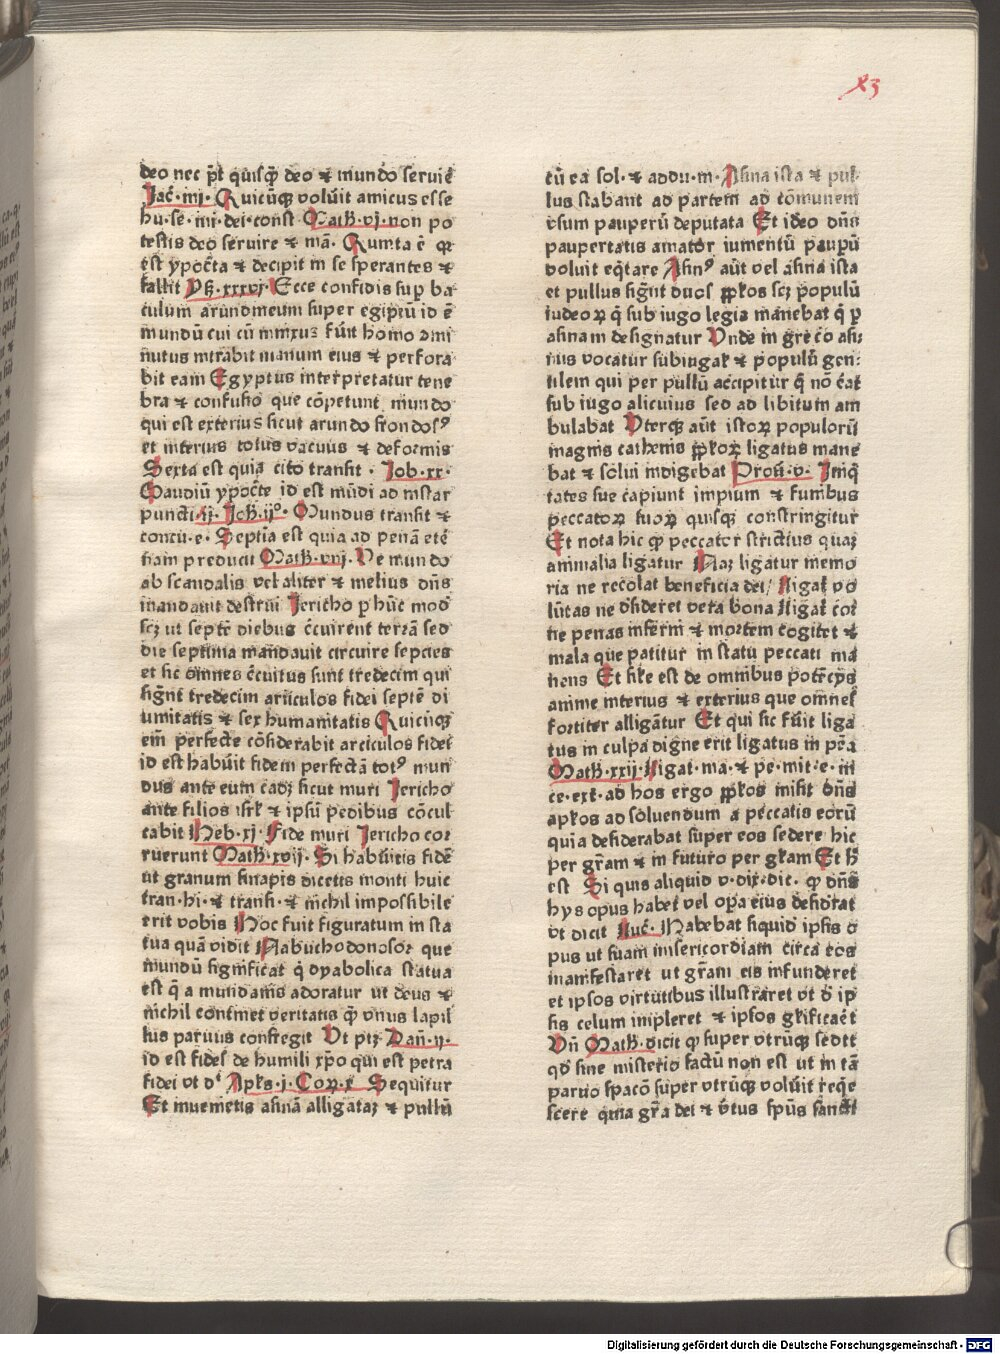 x3
deo nec pōt quisq̄ deo ⁊ mundo seruiē
Jac̄·iiij· Quicūq̄ʒ voluit amicus esse
hu·se·ini·dei·const Math̄·vj·non po
testis deo seruire ⁊ mā· Quinta ē qꝛ
est ypoc̄ta ⁊ decipit in se sperantes ⁊
fallit Ps̄·xxxvj· Ecce confidis sup̱ ba
culum arundineum super egiptū id ē
mundū cui cū innixus fuit homo
nutus intrabit manum eius ⁊ perfora
bit eam Egyptus interpretatur tene
bra ⁊ confusio que cōpetunt mundo
qui est exterius sicut arundo frondosꝰ
et interius totus vacuus ⁊ deformis
Sexta est quia cito transit · Job·xx·
Gaudiū ypoc̄te id est mūdi ad instar
puncti·ij· Joh̄·ijº· Mundus transit ⁊
concu·e· Septīa est quia ad penā etē
nam producit Math̄·xviij· Ve mundo
ab scandalis vel aliter ⁊ melius dn̄s
mandauit destrui Jericho p̱ hūc modū
scʒ ut septē diebus c̄cuirent terrā sed
die septima mandauit circuire sepcies
et sic omnes c̄cuitus sunt tredecim qui
sign̄t tredecim articulos fidei septē di
uinitatis ⁊ sex humanitatis Quicūqʒ
em̄ perfecte cōsiderabit articulos fidei
id est habuit fidem perfectā totꝰ mun
dus ante eum cadʒ sicut muri Jericho
ante filios isrł ⁊ ipsū pedibus cōcul
cabit Heb·xj· Fide muri Jericho cor
ruerunt Math̄·xvij· Si habuitis fidē
ut granum sinapis dicetis monti huic
tran·hi·⁊ transi·⁊ nichil impossibile
erit vobis Hoc fuit figuratum in sta
tua quā vidit Nabuchodonosor que
mundū significat q̄ dyabolica statua
est q̄ a mundanis adoratur ut deus ⁊
nichil continet veritatis q̄ vnus lapil
lus paruus confregit Vt ptʒ Dan̄·ij·
id est fides de humili xp̄o qui est petra
fidei vt dʳ Apłs·j·Coꝝ·x Sequitur
Et inuenietis asinā alligataʒ ⁊ pullū
cū ea sol·⁊ addu·m· Asina ista ⁊ pul
lus stabant ad partem ad cōmunem
vsum pauperū deputata Et ideo dn̄s
paupertatis amator iumentū paup̱ū
voluit eq̄tare Asinꝰ aūt vel asina ista
et pullus sign̄t duos pp̄łos scʒ populū
iudeoꝝ q̄ sub iugo legis manebat q̄ p̱
asinam designatur Vnde in greco asi
nus vocatur subiugał ⁊ populū gen
tilem qui per pullū accipitur q̄ nō c̄at
sub iugo alicuius sed ad libitum am
bulabat Vterqʒ aūt istoꝝ populorū
magnis cathenis pp̄łoꝝ ligatus mane
bat ⁊ solui indigebat Prou̅·v· Iniq̄
tates sue capiunt impium ⁊ funibus
peccatoꝝ suoꝝ quisqʒ constringitur
Et nota hic qꝙ peccator strictius quaʒ
animalia ligatur Naʒ ligatur memo
ria ne recolat beneficia dei/ Ligał vo
lūtas ne dsideret vera bona Ligał cor
ne penas inferni ⁊ mortem cogitet ⁊
mala que patitur in statu peccati ma
nens Et siłe est de omnibus potēcijs
anime interius ⁊ exterius que omnes
fortiter alligātur Et qui sic fuit liga
tus in culpa digne erit ligatus in pēa
Math̄·xxij· Ligat·ma·⁊ pe·mit·e·in
te·ext·ad hos ergo pp̄łos misit dn̄s
apłos ad soluendum a peccatis eorū
quia desiderabat super eos sedere hic
per gr̄am ⁊ in futuro per głam Et h̄
est Si quis aliquid v·dix·dic· qꝙ dn̄s
hys opus habet vel op̱a eius desiderat
vt dicit Luc̄· Habebat siquid ipsis o
pus ut suam misericordiam circa eos
manifestaret ut gr̄am eis infunderet
et ipsos virtutibus illustraret vt d ip
sis celum impleret ⁊ ipsos głificaēt
Vn̄ Math̄·dicit qꝙ super vtrūqʒ sedit
qđ sine misterio factū non est ut in tā
paruo spacō super vtrūqʒ voluit reqe
scere quia gr̄a dei ⁊ v̄tus spūs sancti
Digitalisierung gefördert durch die Deutsche Forschungsgemeinschaft · DFG